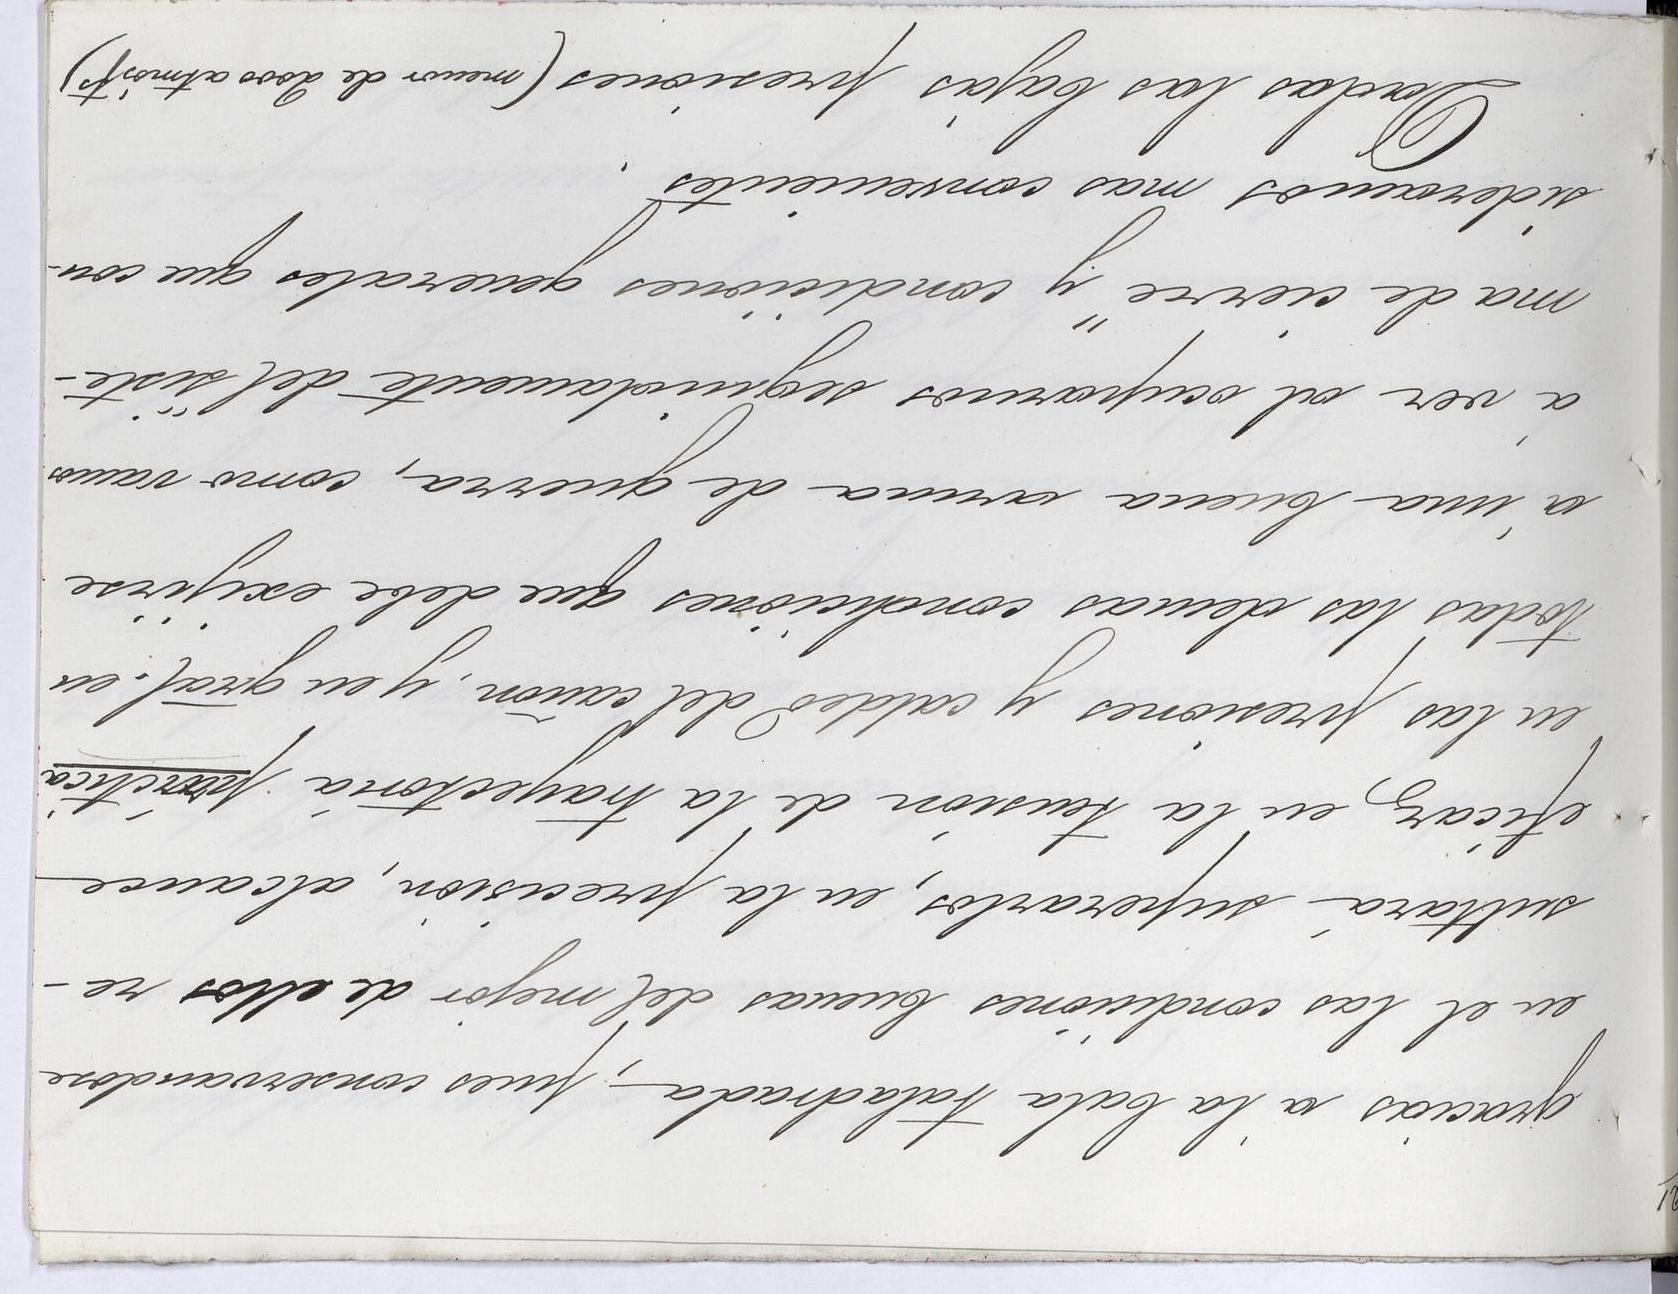 gracias á la bala taladrada, pues conservandose
en el las condiciónes buenas del mejor de ellos re-
sultará superarlos, en la precisión, alcance
eficaz, en la tensión de la trayectoria práctica
en las presiónes y caldeo del cañón, y en gral. en
todas las demas condiciónes que debe exijirse
á una buena arma de guerra, como vamos
á ver al ocuparnos seguidamente del siste-
ma de cierre" y condiciónes generales que con-
sideramos mas convenientes.
Dadas las bajas presiones (menor de 2000 atmósfs)